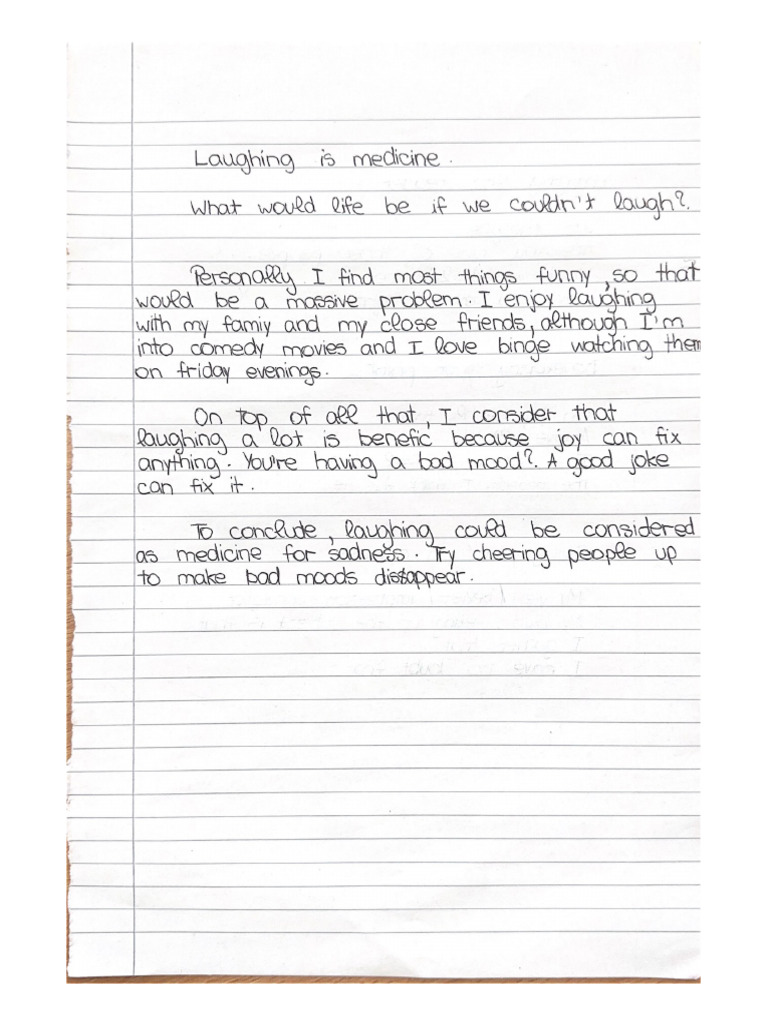 Laughing is medicine.
What would life be if we couldn't laugh?
Personally I find most things funny, so that
would be a massive problem. I enjoy laughing
with my famiy and my close friends, although I'm
into comedy movies and I love binge watching them
on friday evenings.
On top of all that, I consider that
laughing a lot is benefic because joy can fix
anything. You're having a bad mood?. A good joke
can fix it.
To conclude, laughing could be considered
as medicine for sadness. Try cheering people up
to make bad moods disappear.